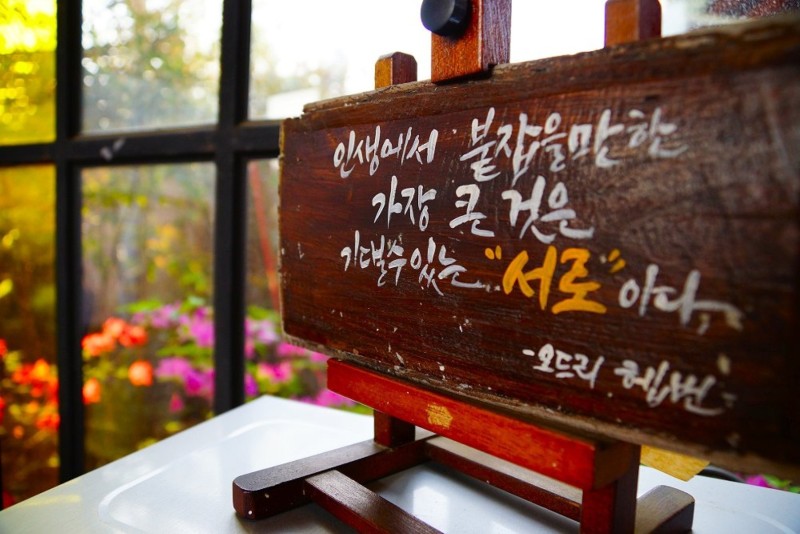 인생에서 붙잡을만한
가장 큰 것은
기댈수있는.. "서로" 이다.
- 오드리 헵번